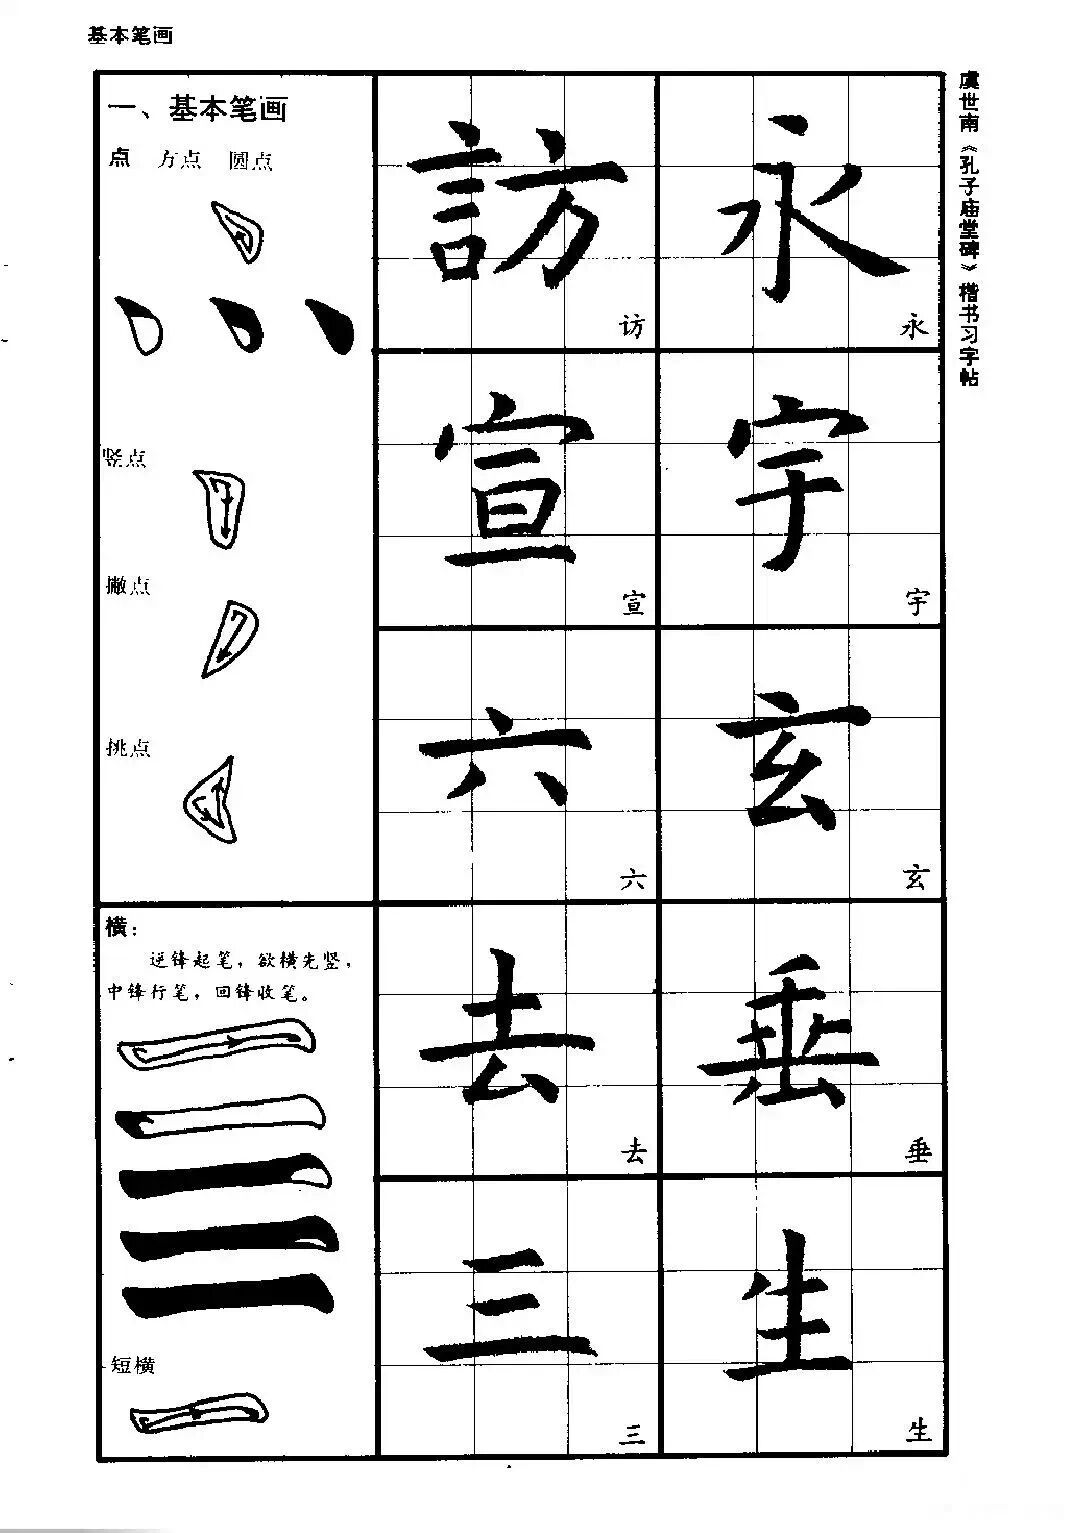 基本笔画
虞世南《孔子庙堂碑》楷书习字帖
一、基本笔画
点 方点 圆点
竖点
撇点
挑点
横：
逆锋起笔，欲横先竖，
中锋行笔，回锋收笔。
短横
訪 永
访 永
宣 宇
宣 宇
六 玄
六 玄
去 垂
去 垂
三 生
三 生